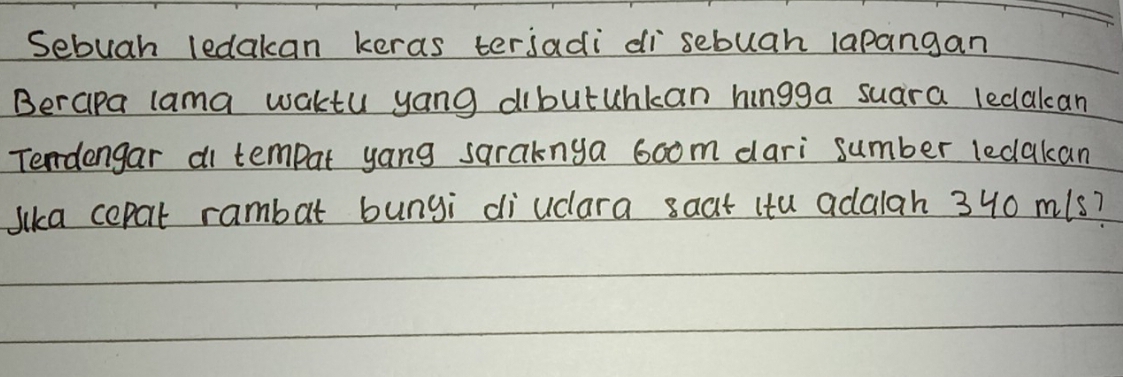 Sebuah ledakan keras terjadi di sebuah lapangan
Berapa lama waktu yang dibutuhkan hingga suara ledakan
Terdengar di tempat yang jaraknya 600m dari sumber ledakan
Jika cepat rambat bunyi di udara saat itu adalah 340 m/s?